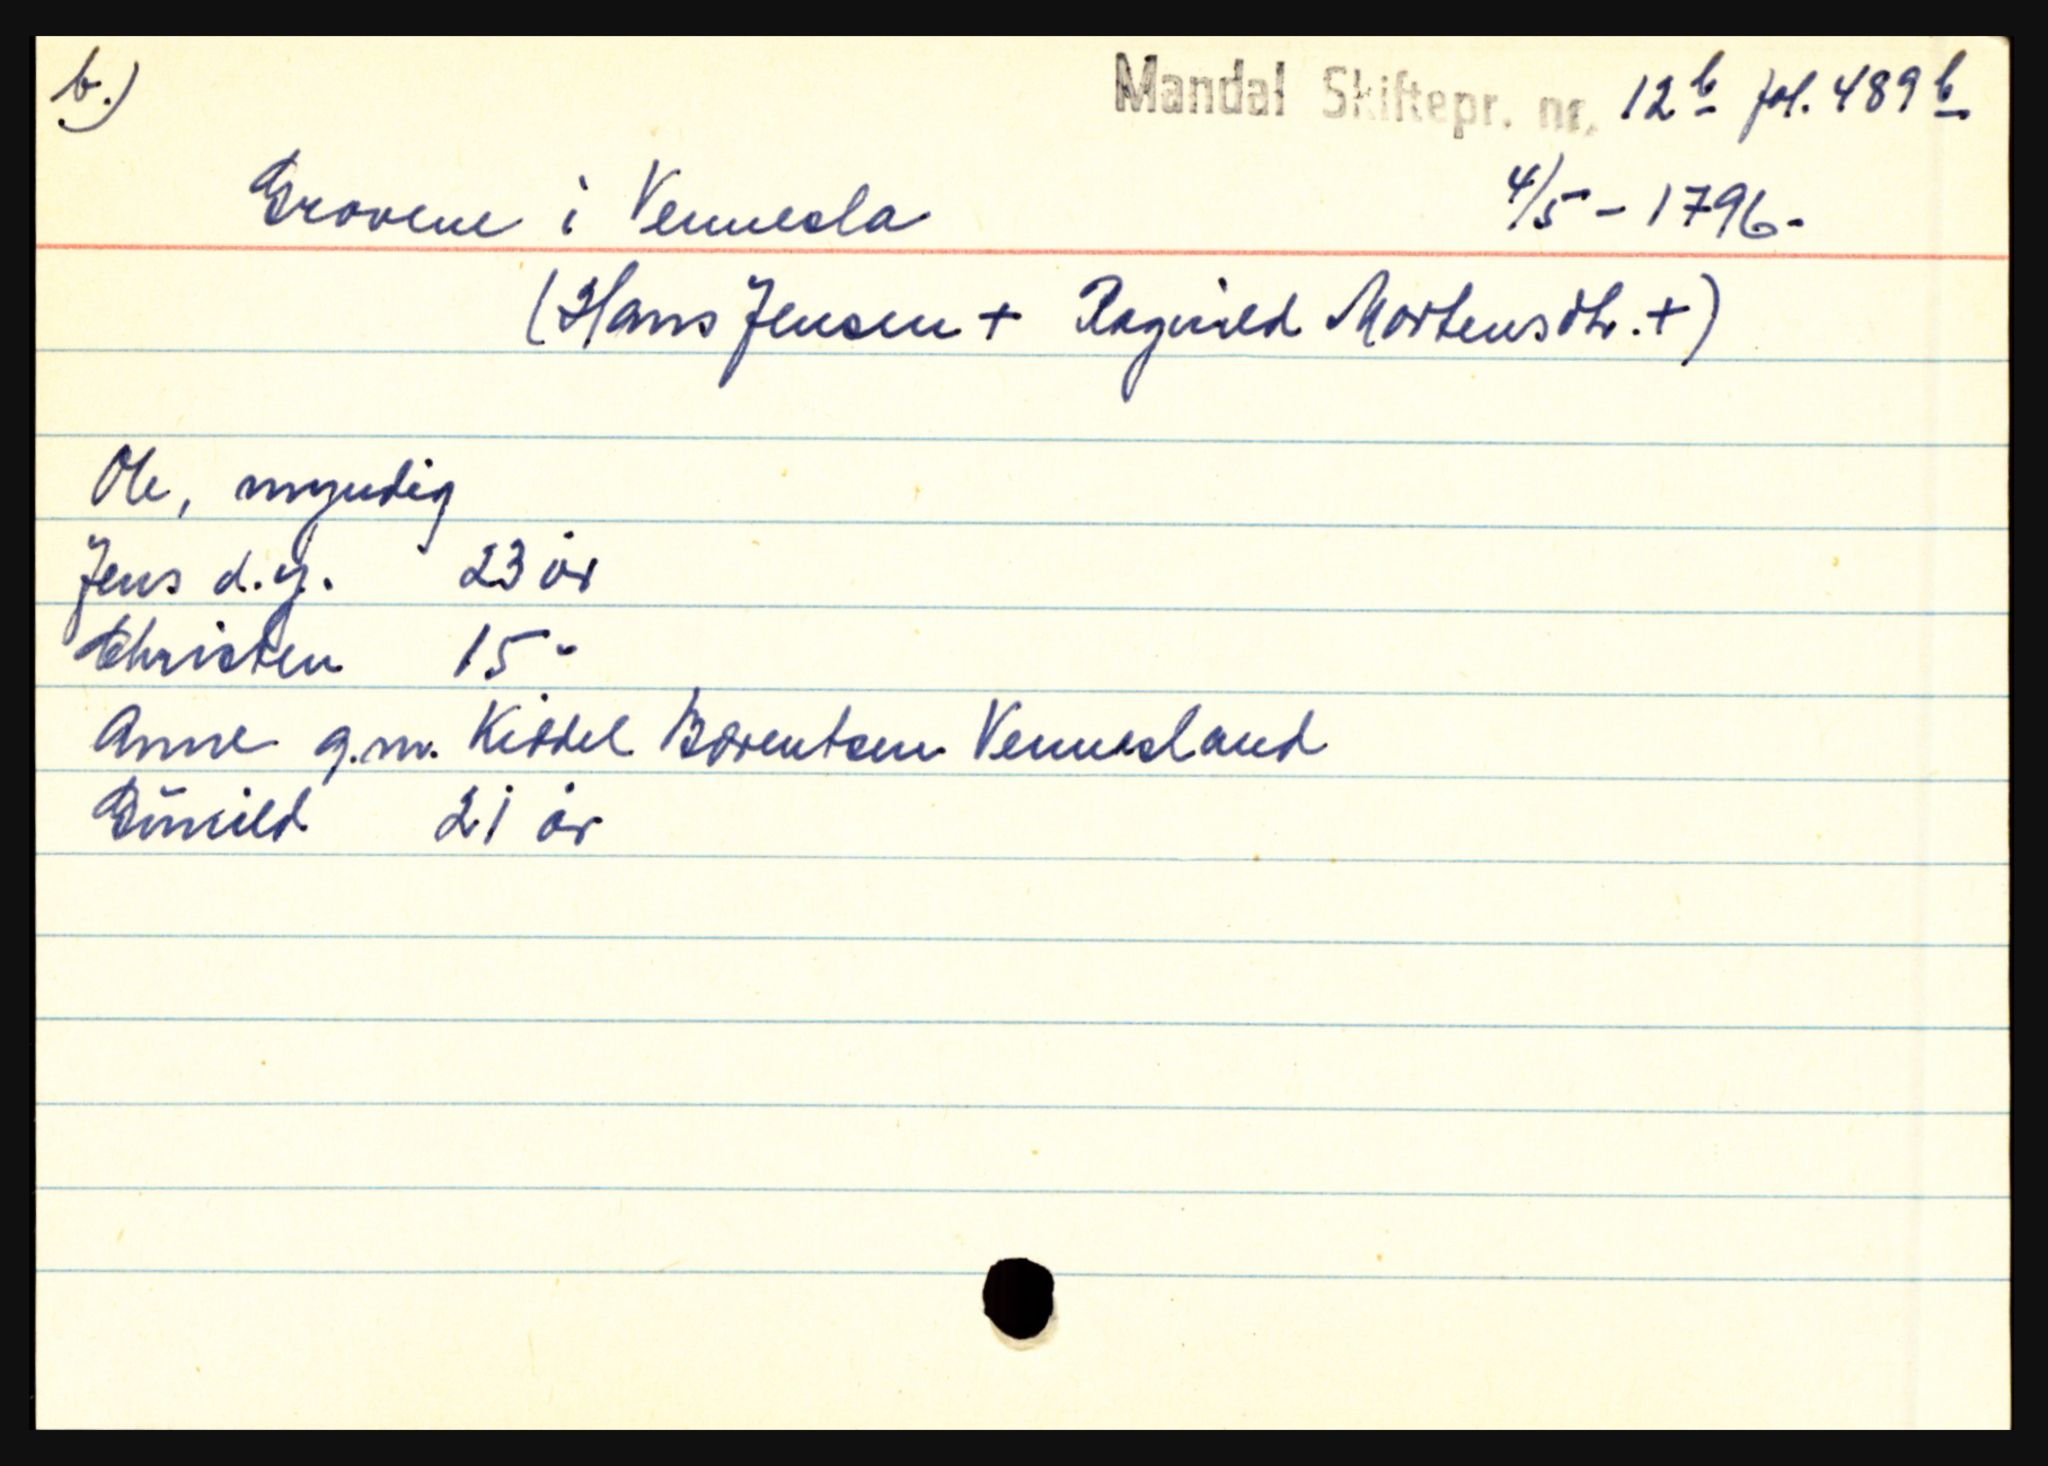 b.)
Mandal Skiftepr. nr. 12b fol. 489b
Grovene i Vennesla 4/5 - 1796.
(Hans Jensen + Ragnild Mortensdtr. +)
Ole, myndig
Jens d.y. 23 år
Christen 15 "
Anne g.m. Kiddel Børentsen Vennesland
Günild 21 år